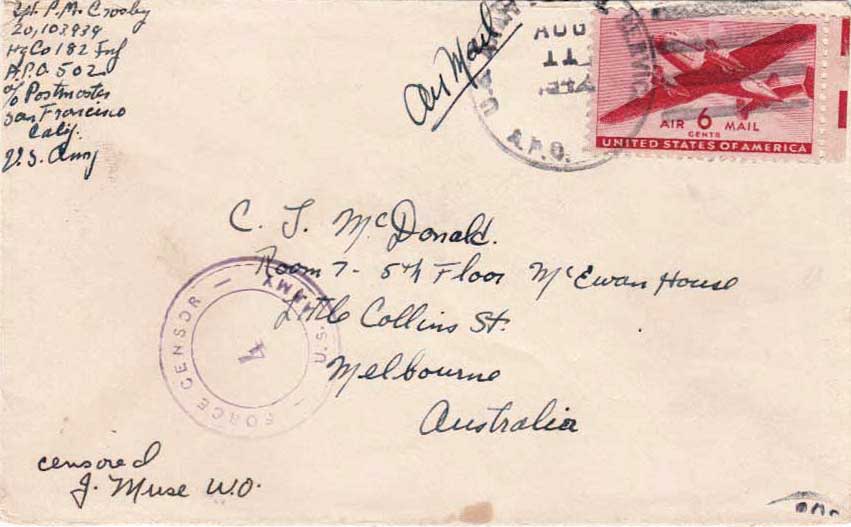 Sgt. P.M. Crosby
20,103,939
Hq Co 182 Inf
A.P.O 502
c/o Postmaster
San Francisco
Calif.
U.S. Army
Air Mail
AUG
11
A.P.O.
AIR 6 MAIL
CENTS
UNITED STATES OF AMERICA
C. J. McDonald.
Room 7 - 5th Floor McEwan House
Little Collins St.
Melbourne
Australia
U.S. ARMY
FORCE CENSOR
4
censored
J. Muse W.O.